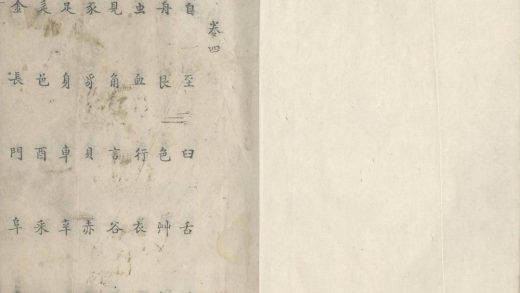 卷四
自至臼舌
舟艮色艸
虫血行衣
見角言谷
豕豸貝赤
足身車辛
辵邑酉釆
金長門阜